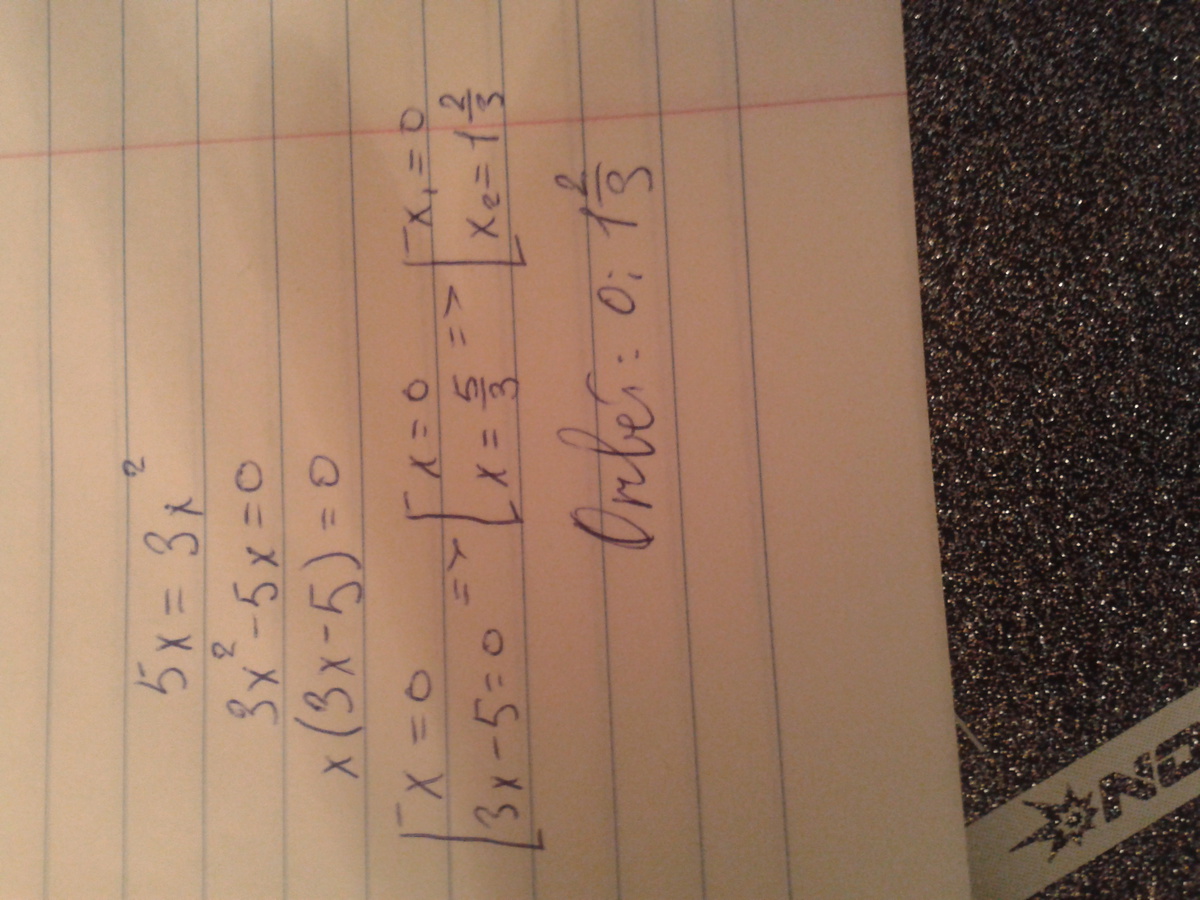 5x = 3x²
3x² - 5x = 0
x(3x - 5) = 0
[x = 0 [x = 0 [x₁ = 0
[3x - 5 = 0 => [x = 5/3 => [x₂ = 1 2/3
Ответ: 0; 1 2/3